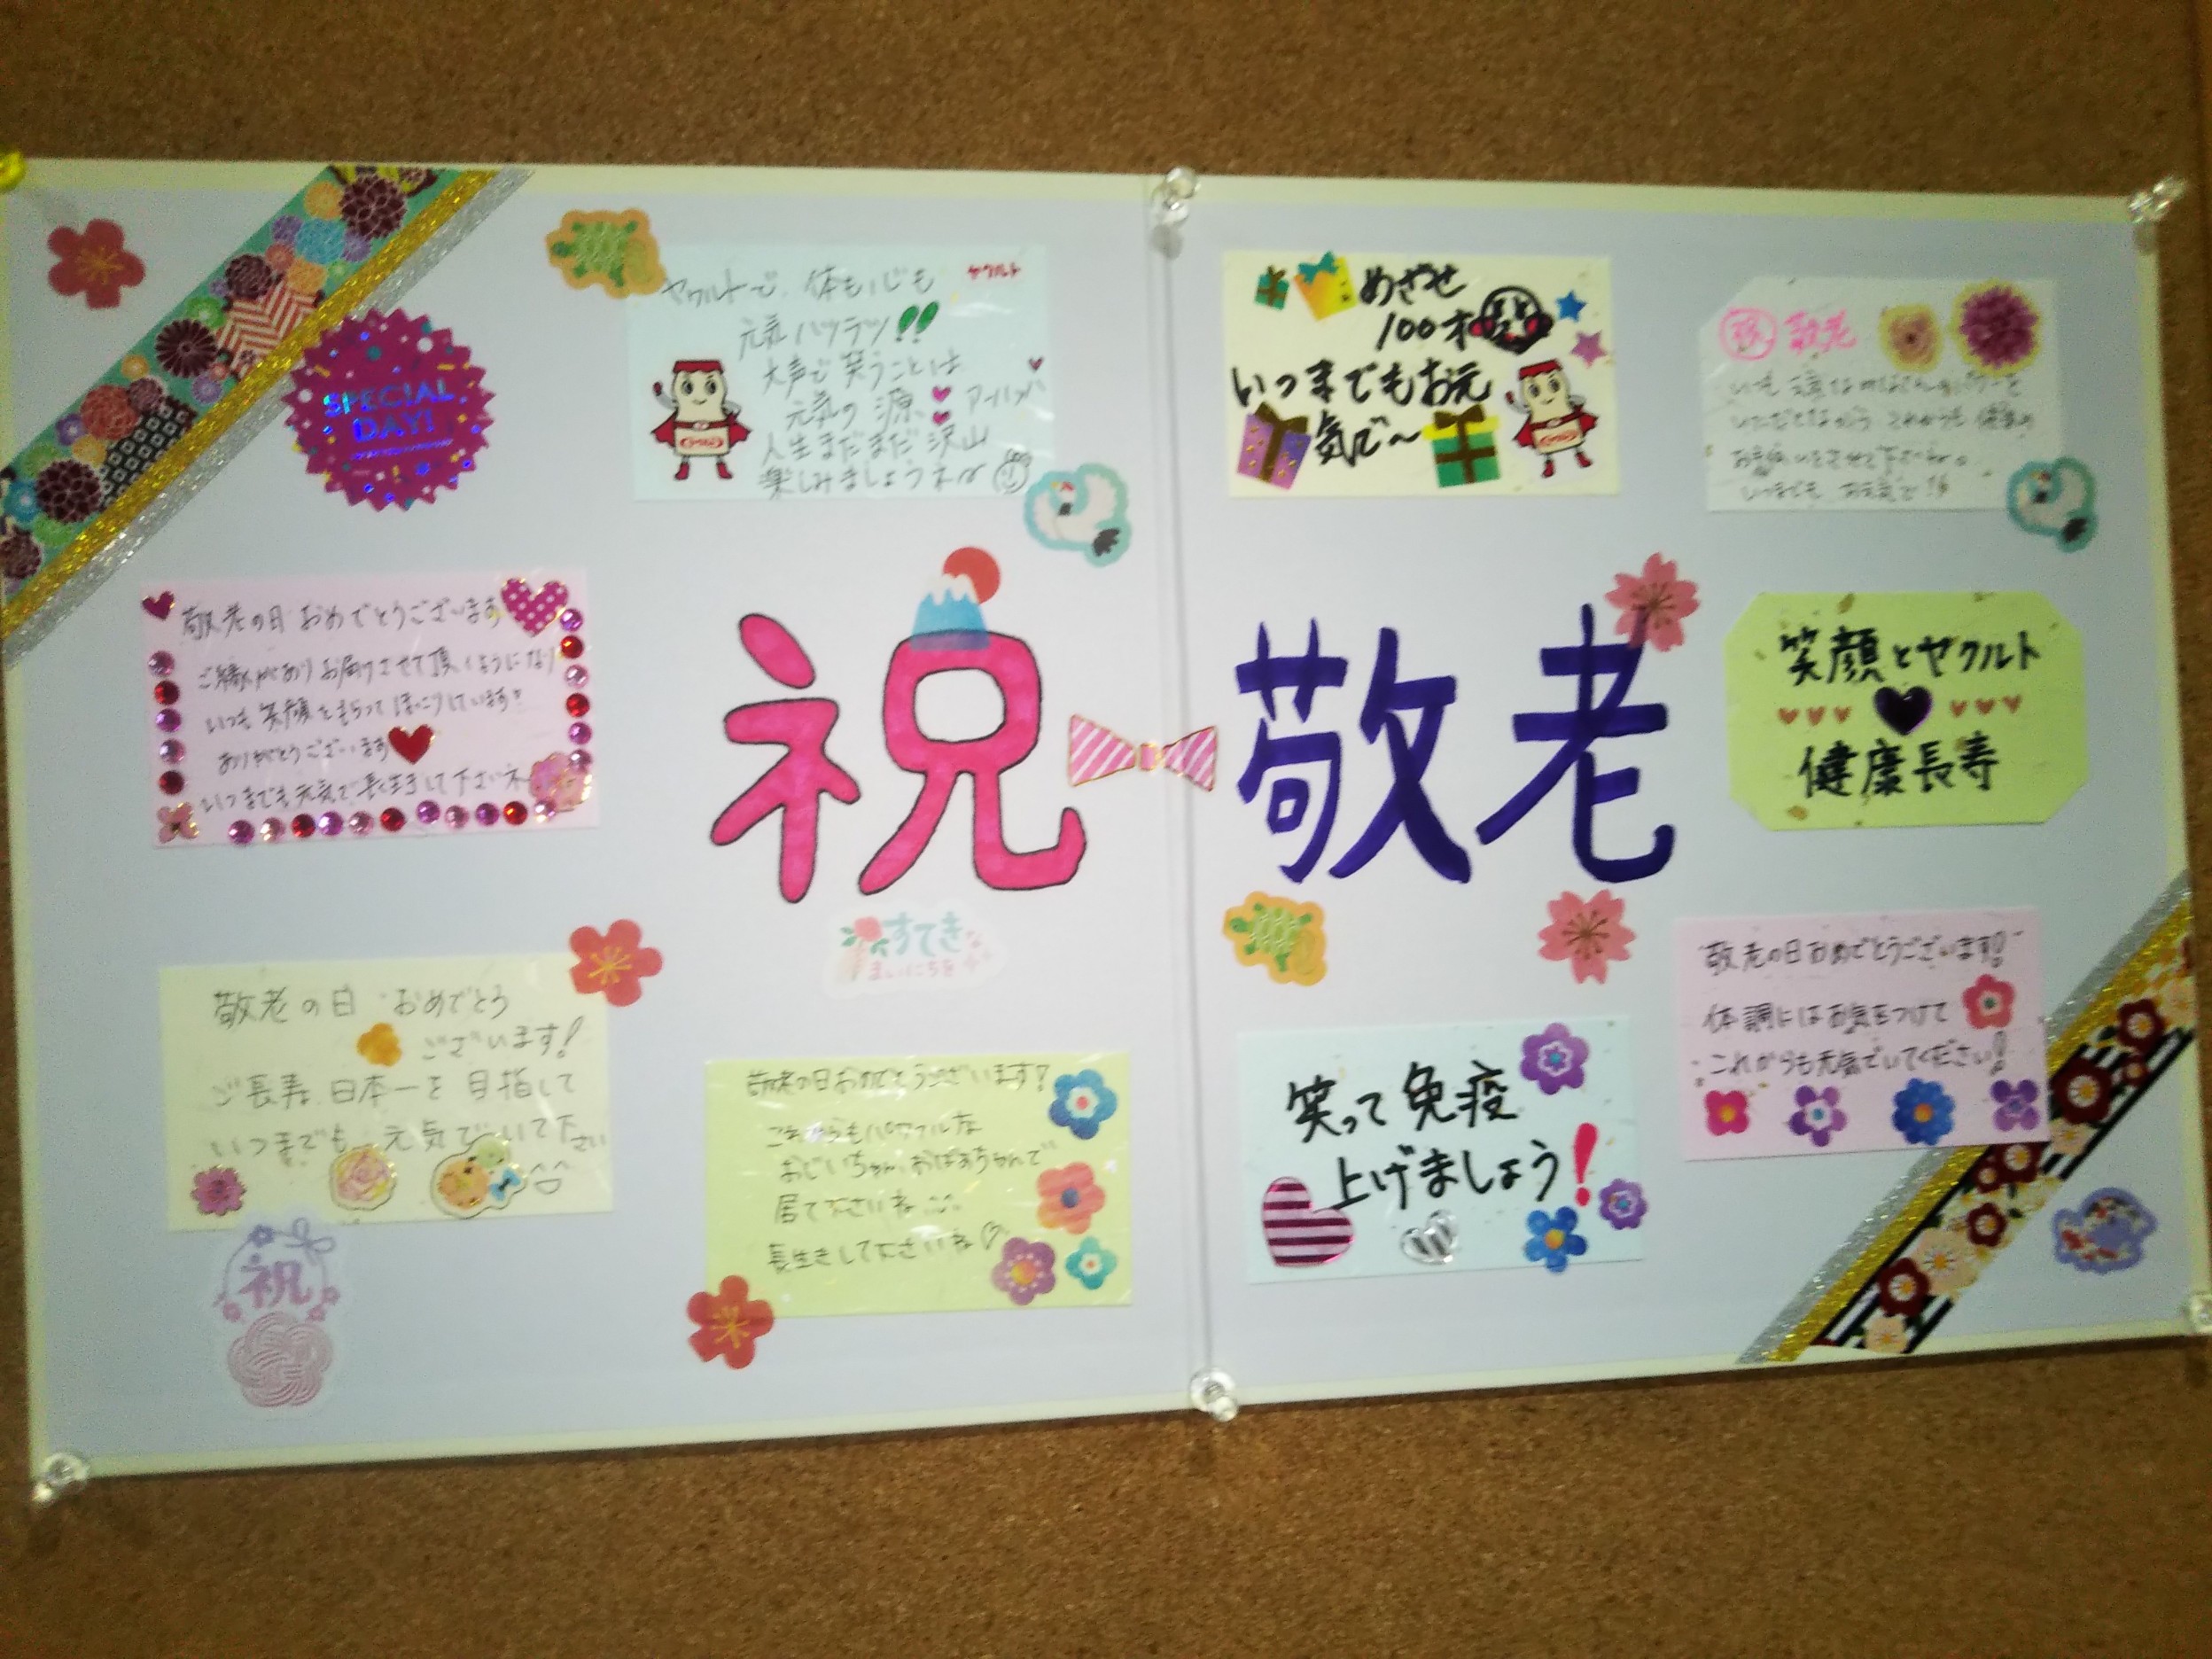 SPECIAL
DAY!
ヤクルトで、体も心も
ヤクルト
元気ハツラツ!!
大声で笑うことは
元気の源
人生まだまだ沢山
楽しみましょうネ
めざせ
100才
いつまでもお元
気で〜
祝 敬老
いつまでも お元気で!!
敬老の日 おめでとうございます
ご縁がありお届けさせて頂くようになり
いつも笑顔をもらってほっこりしています!
ありがとうございます
いつまでも元気で、長生きして下さいネ
祝 敬老
笑顔とヤクルト
健康長寿
すてき
まいにちを
敬老の日 おめでとう
ございます!
ご長寿 日本一を目指して
いつまでも 元気で いて下さい
祝
敬老の日おめでとうございます!
これからもパワフルな
おじいちゃん、おばあちゃんで
居て下さいね
長生きして下さいね
笑って免疫
上げましょう!
敬老の日おめでとうございます!
体調にはお気をつけて
これからも元気でいてください!